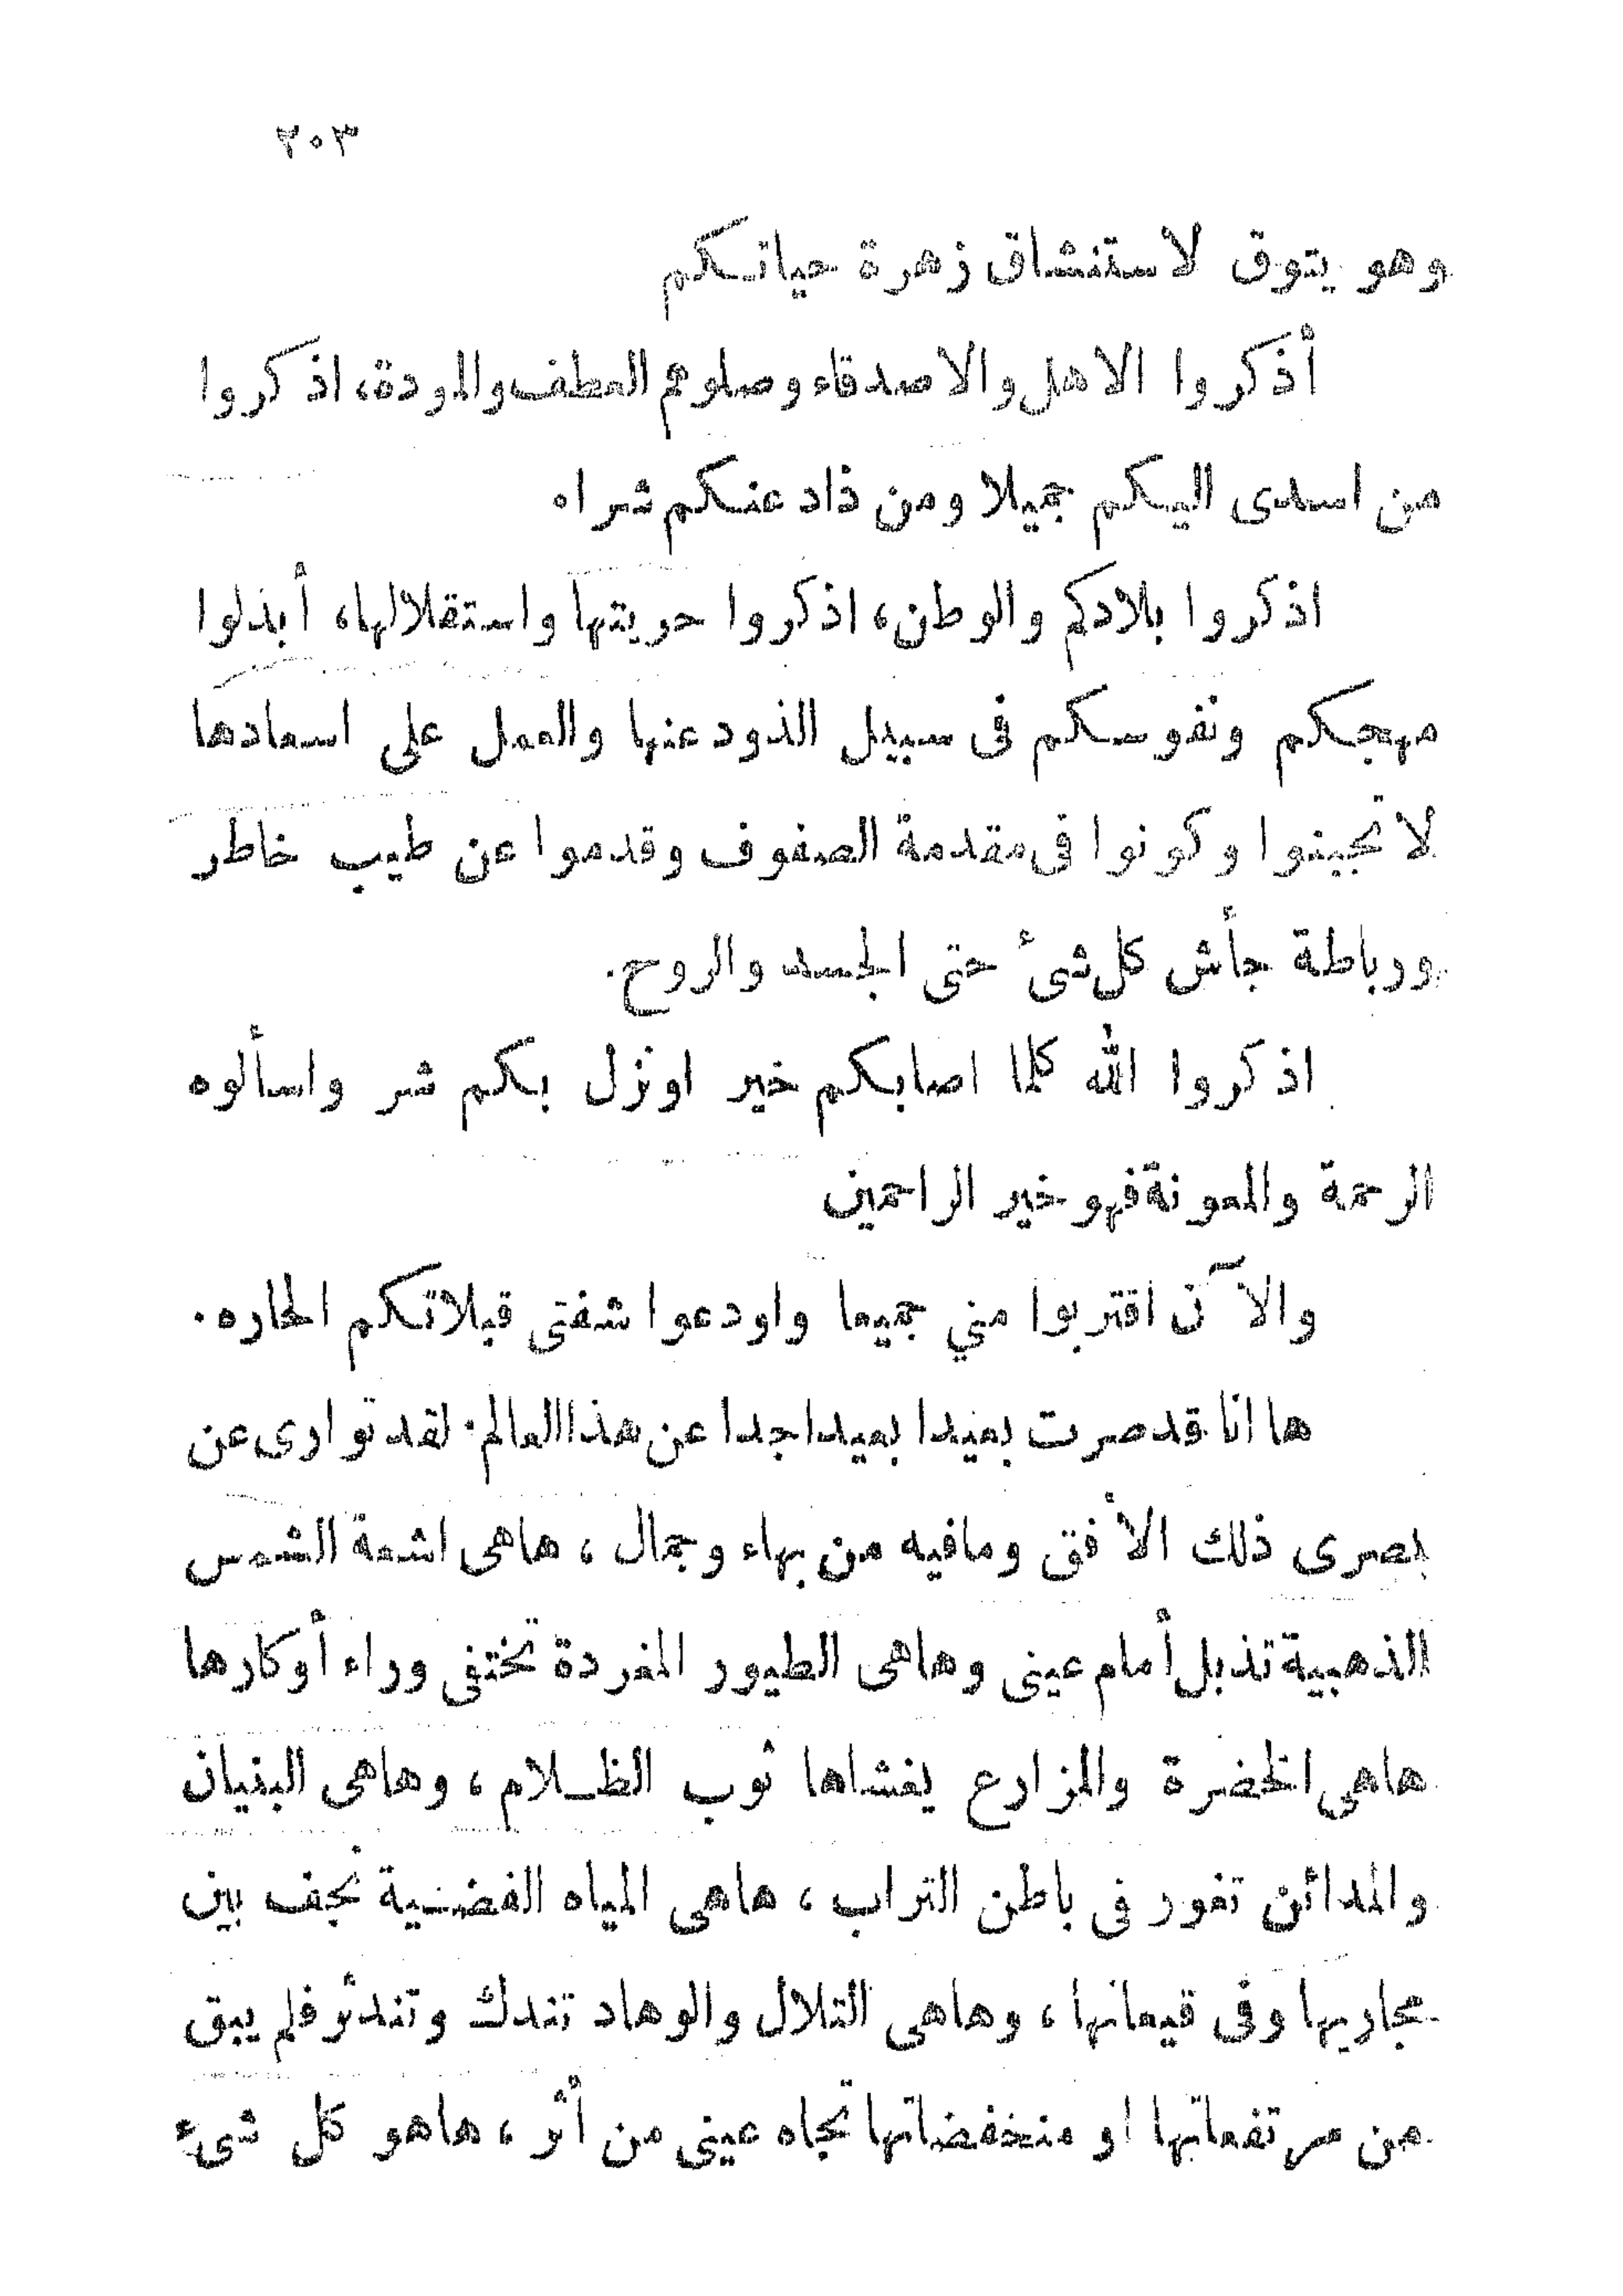 ٢٠٣
وهو يتوق لاستنشاق زهرة حياتكم
أذكروا الاهل والاصدقاء وصلوهم العطف والمودة، اذكروا
من اسدى اليكم جميلا ومن ذاد عنكم شراه
اذكروا بلادكم والوطن، اذكروا حريتها واستقلالها، أبذلوا
مهجكم ونفوسكم فى سبيل الذود عنها والعمل على اسعادها
لا تجبنوا وكونوا فى مقدمة الصفوف وقدموا عن طيب خاطر
ورباطة جأش كل شئ حتى الجسد والروح.
اذكروا الله كلما اصابكم خير او نزل بكم شر واسألوه
الرحمة والمعونة فهو خير الراحمين
والآن اقتربوا مني جميعا واودعوا شفتى قبلاتكم الحاره.
ها انا قد صرت بعيدا بعيدا جدا عن هذا العالم. لقد توارى عن
بصرى ذلك الأفق ومافيه من بهاء وجمال، هاهى اشعة الشمس
الذهبية تذبل أمام عينى وهاهى الطيور المغردة تختفى وراء أوكارها
هاهى الخضرة والمزارع يغشاها ثوب الظلام، وهاهى البنيان
والمدائن تغور فى باطن التراب، هاهى المياه الفضية تجف بين
مجاريها وفى قيعانها، وهاهى التلال والوهاد تندك وتندثر فلم يبق
من مرتفعاتها او منخفضاتها تجاه عينى من أثر، هاهو كل شىء